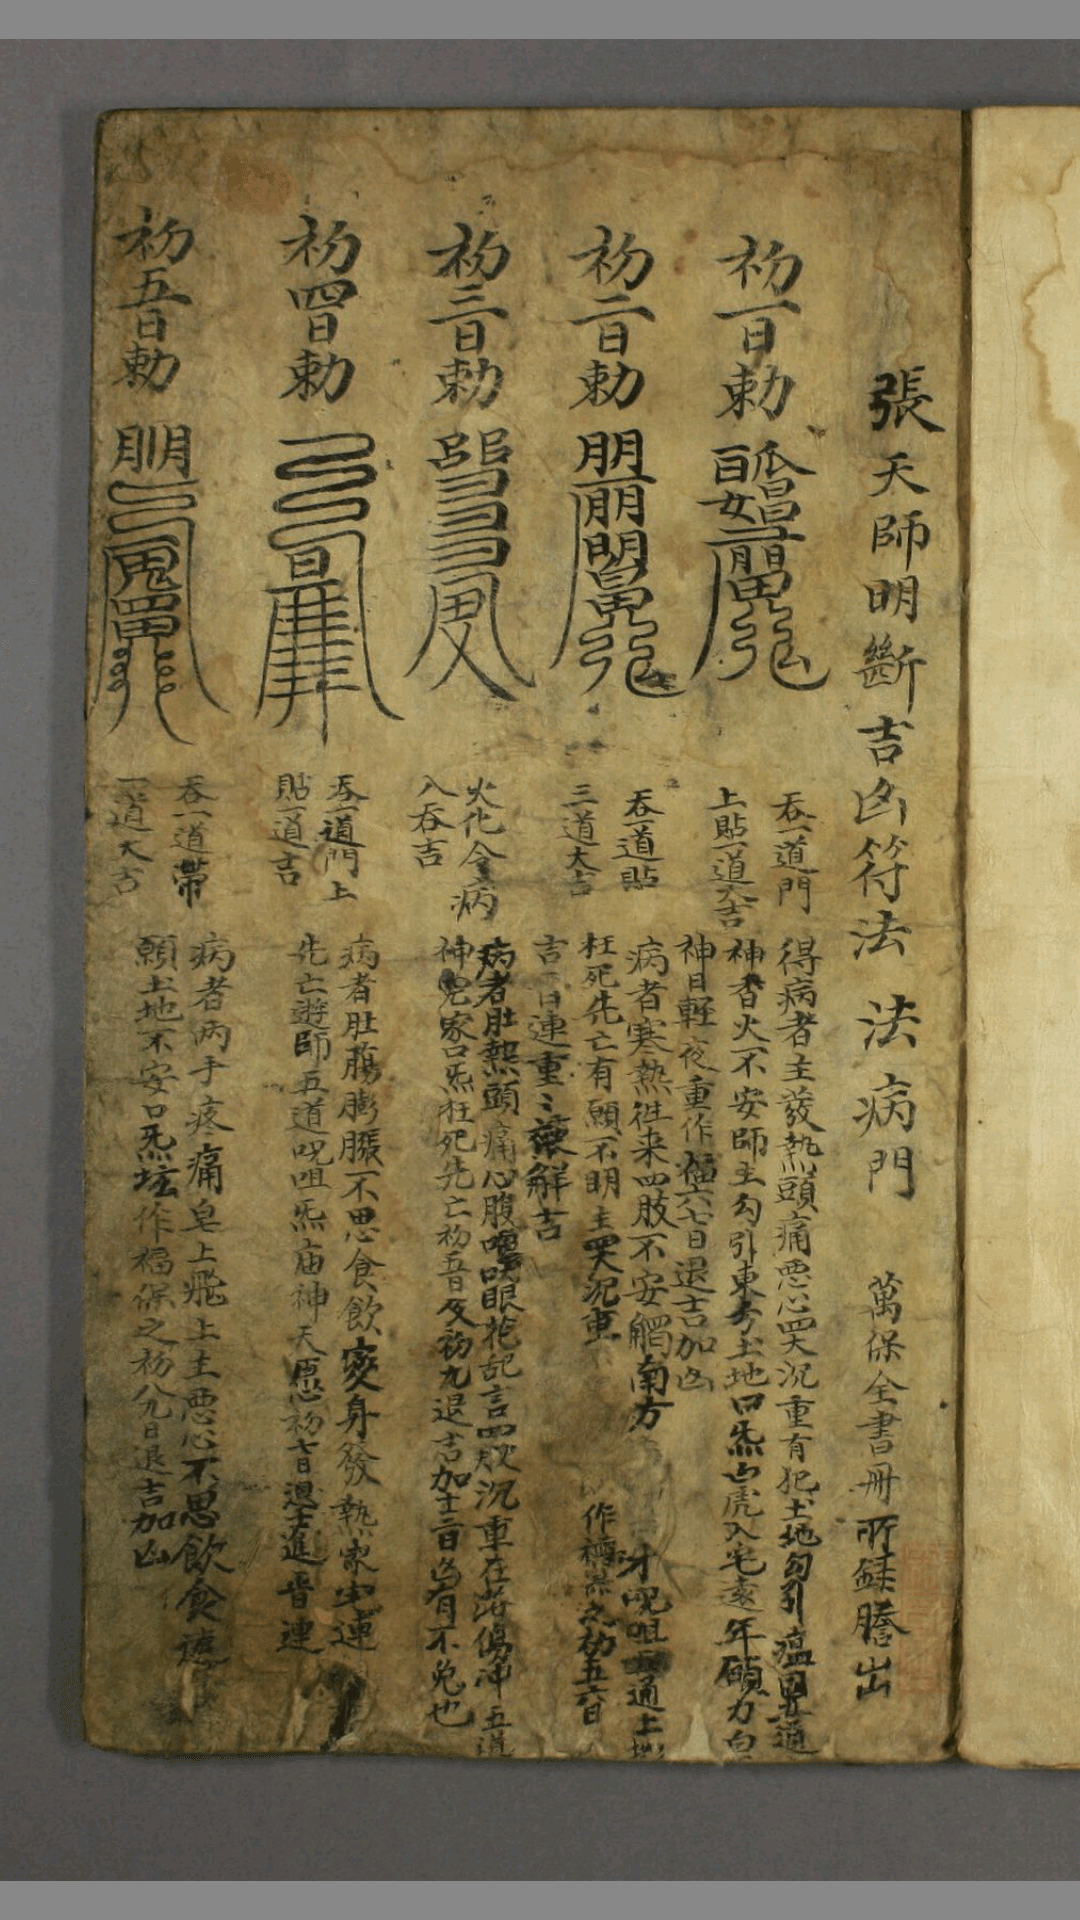 張天師明斷吉凶符法 法病門 萬保全書冊所錄謄出
初一日勅
吞一道門
上貼一道大吉
得病者主發熱頭痛悪心四大沉重有犯土地勾引瘟司五道
神香火不安師主勾引東方土地口炁凶虎入宅遠年願力白
神日軽夜重作福六七日退吉加凶
初二日勅
吞一道貼
三道大吉
病者寒熱往来四肢不安觸南方 呪咀五通土地
枉死先亡有願不明主四大沉重 作福 之初五六日
吉 日連重〻禳解吉
初三日勅
火化令病
人吞吉
病者肚熱頭痛心腹 眼花乱言四肢沉重在 傷冲五道
神 家口炁枉死先亡初五日及初九退吉加十二日凶有不免也
初四日勅
吞一道門上
貼一道吉
病者肚腸膨脹不思食飲 身發熱家宅連
先亡遊師五道呪咀炁庙神天愿初七日退 進 連
初五日勅
吞一道帶
一道大吉
病者两手疼痛皂上飛上主悪心不思飲食
願土地不安口炁坛作福保之初八九日退吉加凶